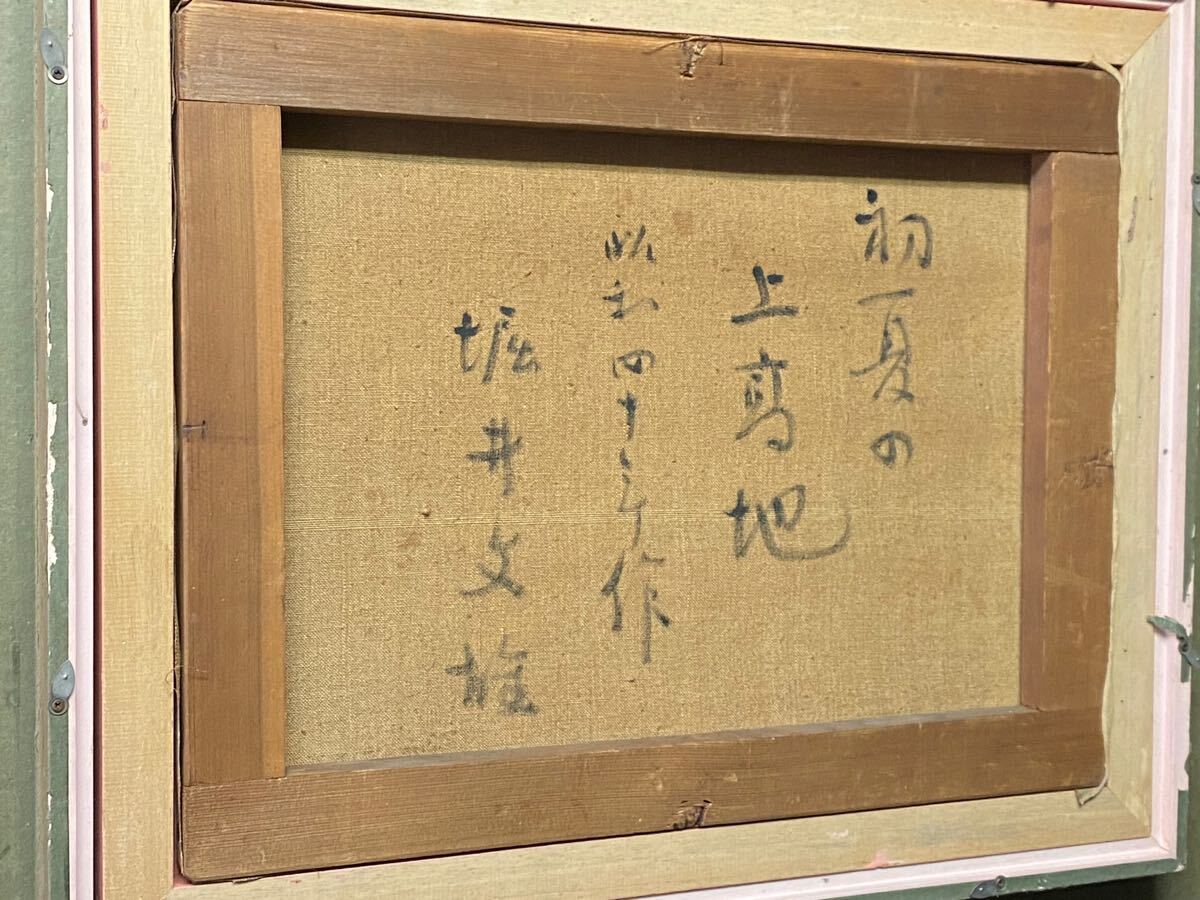 初夏の
上高地
昭和四十三年作
堀井文雄